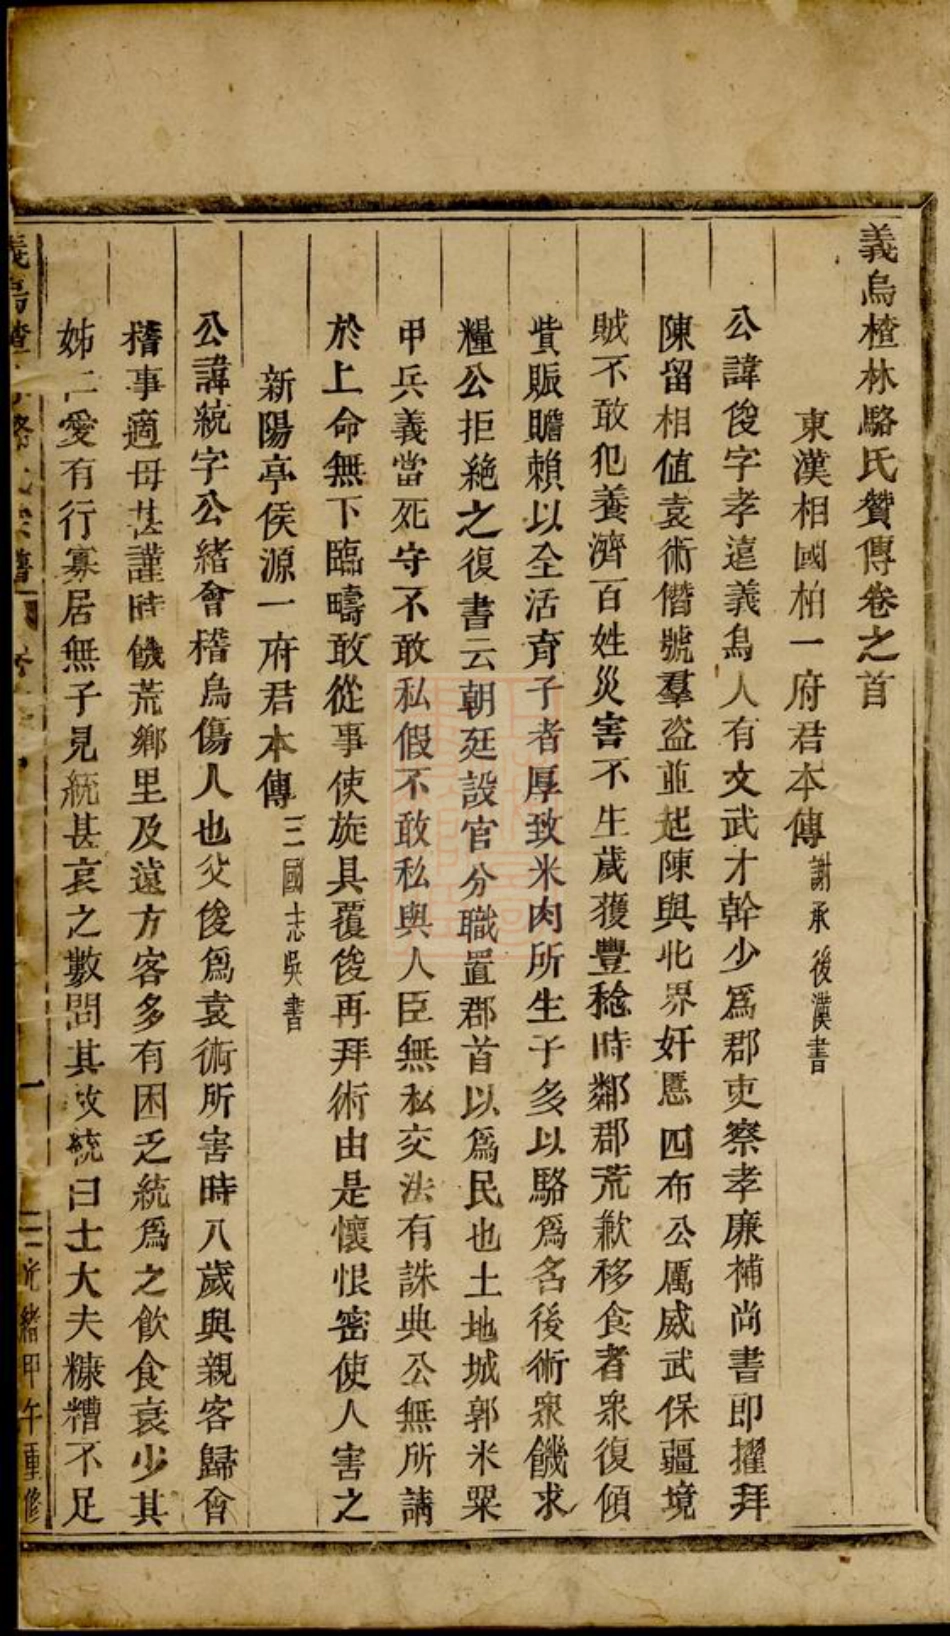 義烏楂林駱氏贊傳卷之首
東漢相國柏一府君本傳謝承後漢書
公諱俊字孝遠義烏人有文武才幹少爲郡吏察孝廉補尚書即擢拜
陳留相値袁術僭號羣盜並起陳與北界奸慝四布公厲威武保疆境
賊不敢犯養濟百姓災害不生歲獲豐稔時鄰郡荒歉移食者衆復傾
貲賑贍賴以全活育子者厚致米肉所生子多以駱爲名後術衆饑求
糧公拒絶之復書云朝廷設官分職置郡首以爲民也土地城郭米粟
甲兵義當死守不敢私假不敢私與人臣無私交法有誅典公無所請
於上命無下臨疇敢從事使旋具覆俊再拜術由是懷恨密使人害之
新陽亭侯源一府君本傳三國志吳書
公諱統字公緒會稽烏傷人也父俊爲袁術所害時八歲與親客歸會
稽事適母甚謹時饑荒鄉里及遠方客多有困乏統爲之飲食衰少其
姊仁愛有行寡居無子見統甚哀之數問其故統曰士大夫糠糟不足
光緒甲午重修